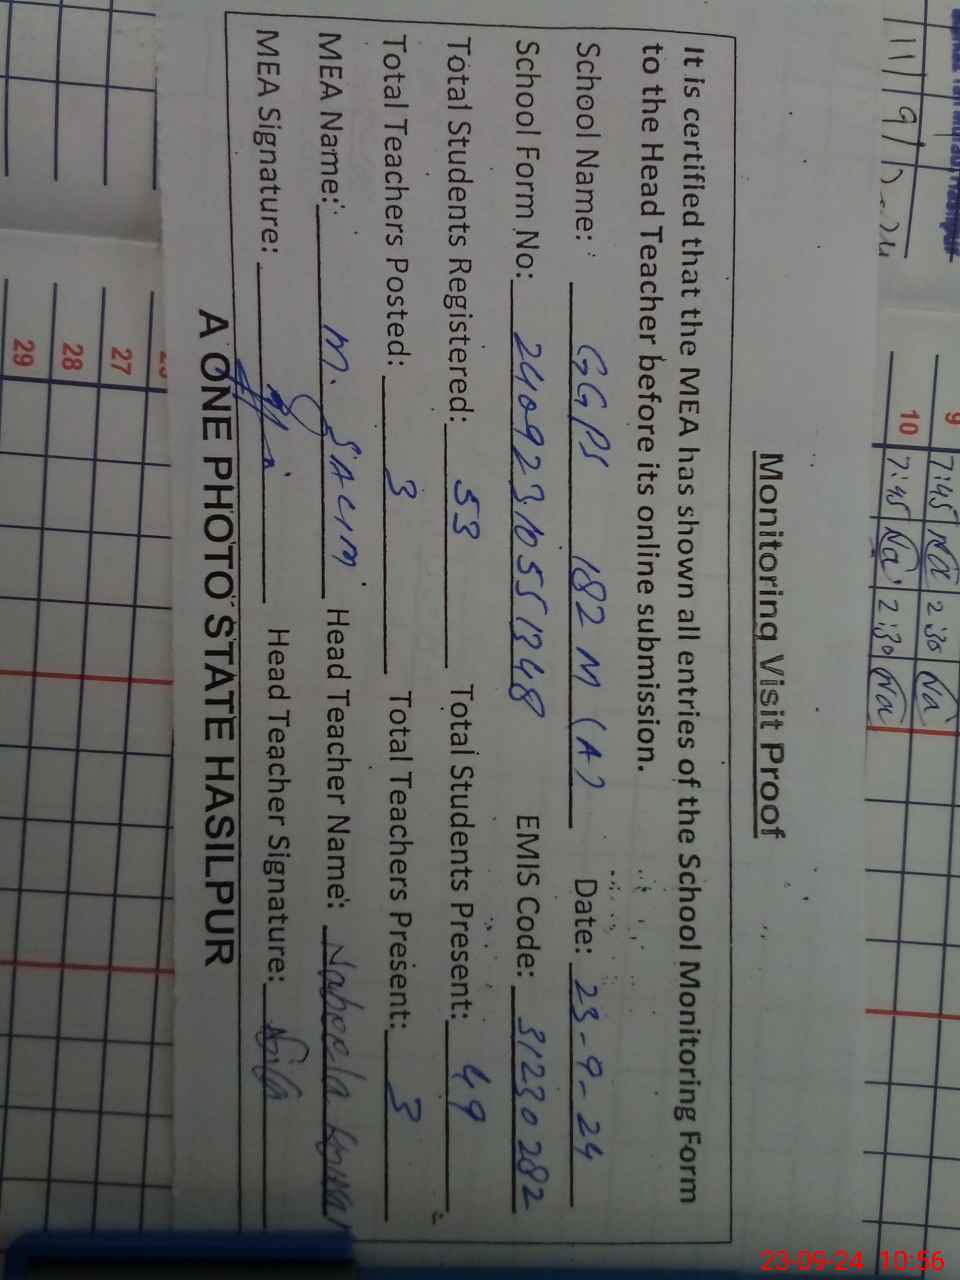 Monitoring Visit Proof
It is certified that the MEA has shown all entries of the School Monitoring Form
to the Head Teacher before its online submission.
School Name: GGPS 182 M (A) Date: 23-9-24
School Form No: 24092310551348 EMIS Code: 31230282
Total Students Registered: 53 Total Students Present: 49
Total Teachers Posted: 3 Total Teachers Present: 3
MEA Name: M. SALIM Head Teacher Name: Nabeela Kanwal
MEA Signature: Head Teacher Signature:
A ONE PHOTO STATE HASILPUR
9 7:45 Na 2:30 Na
10 7:45 Na 2:30 Na
27
28
29
23-09-24 10:56